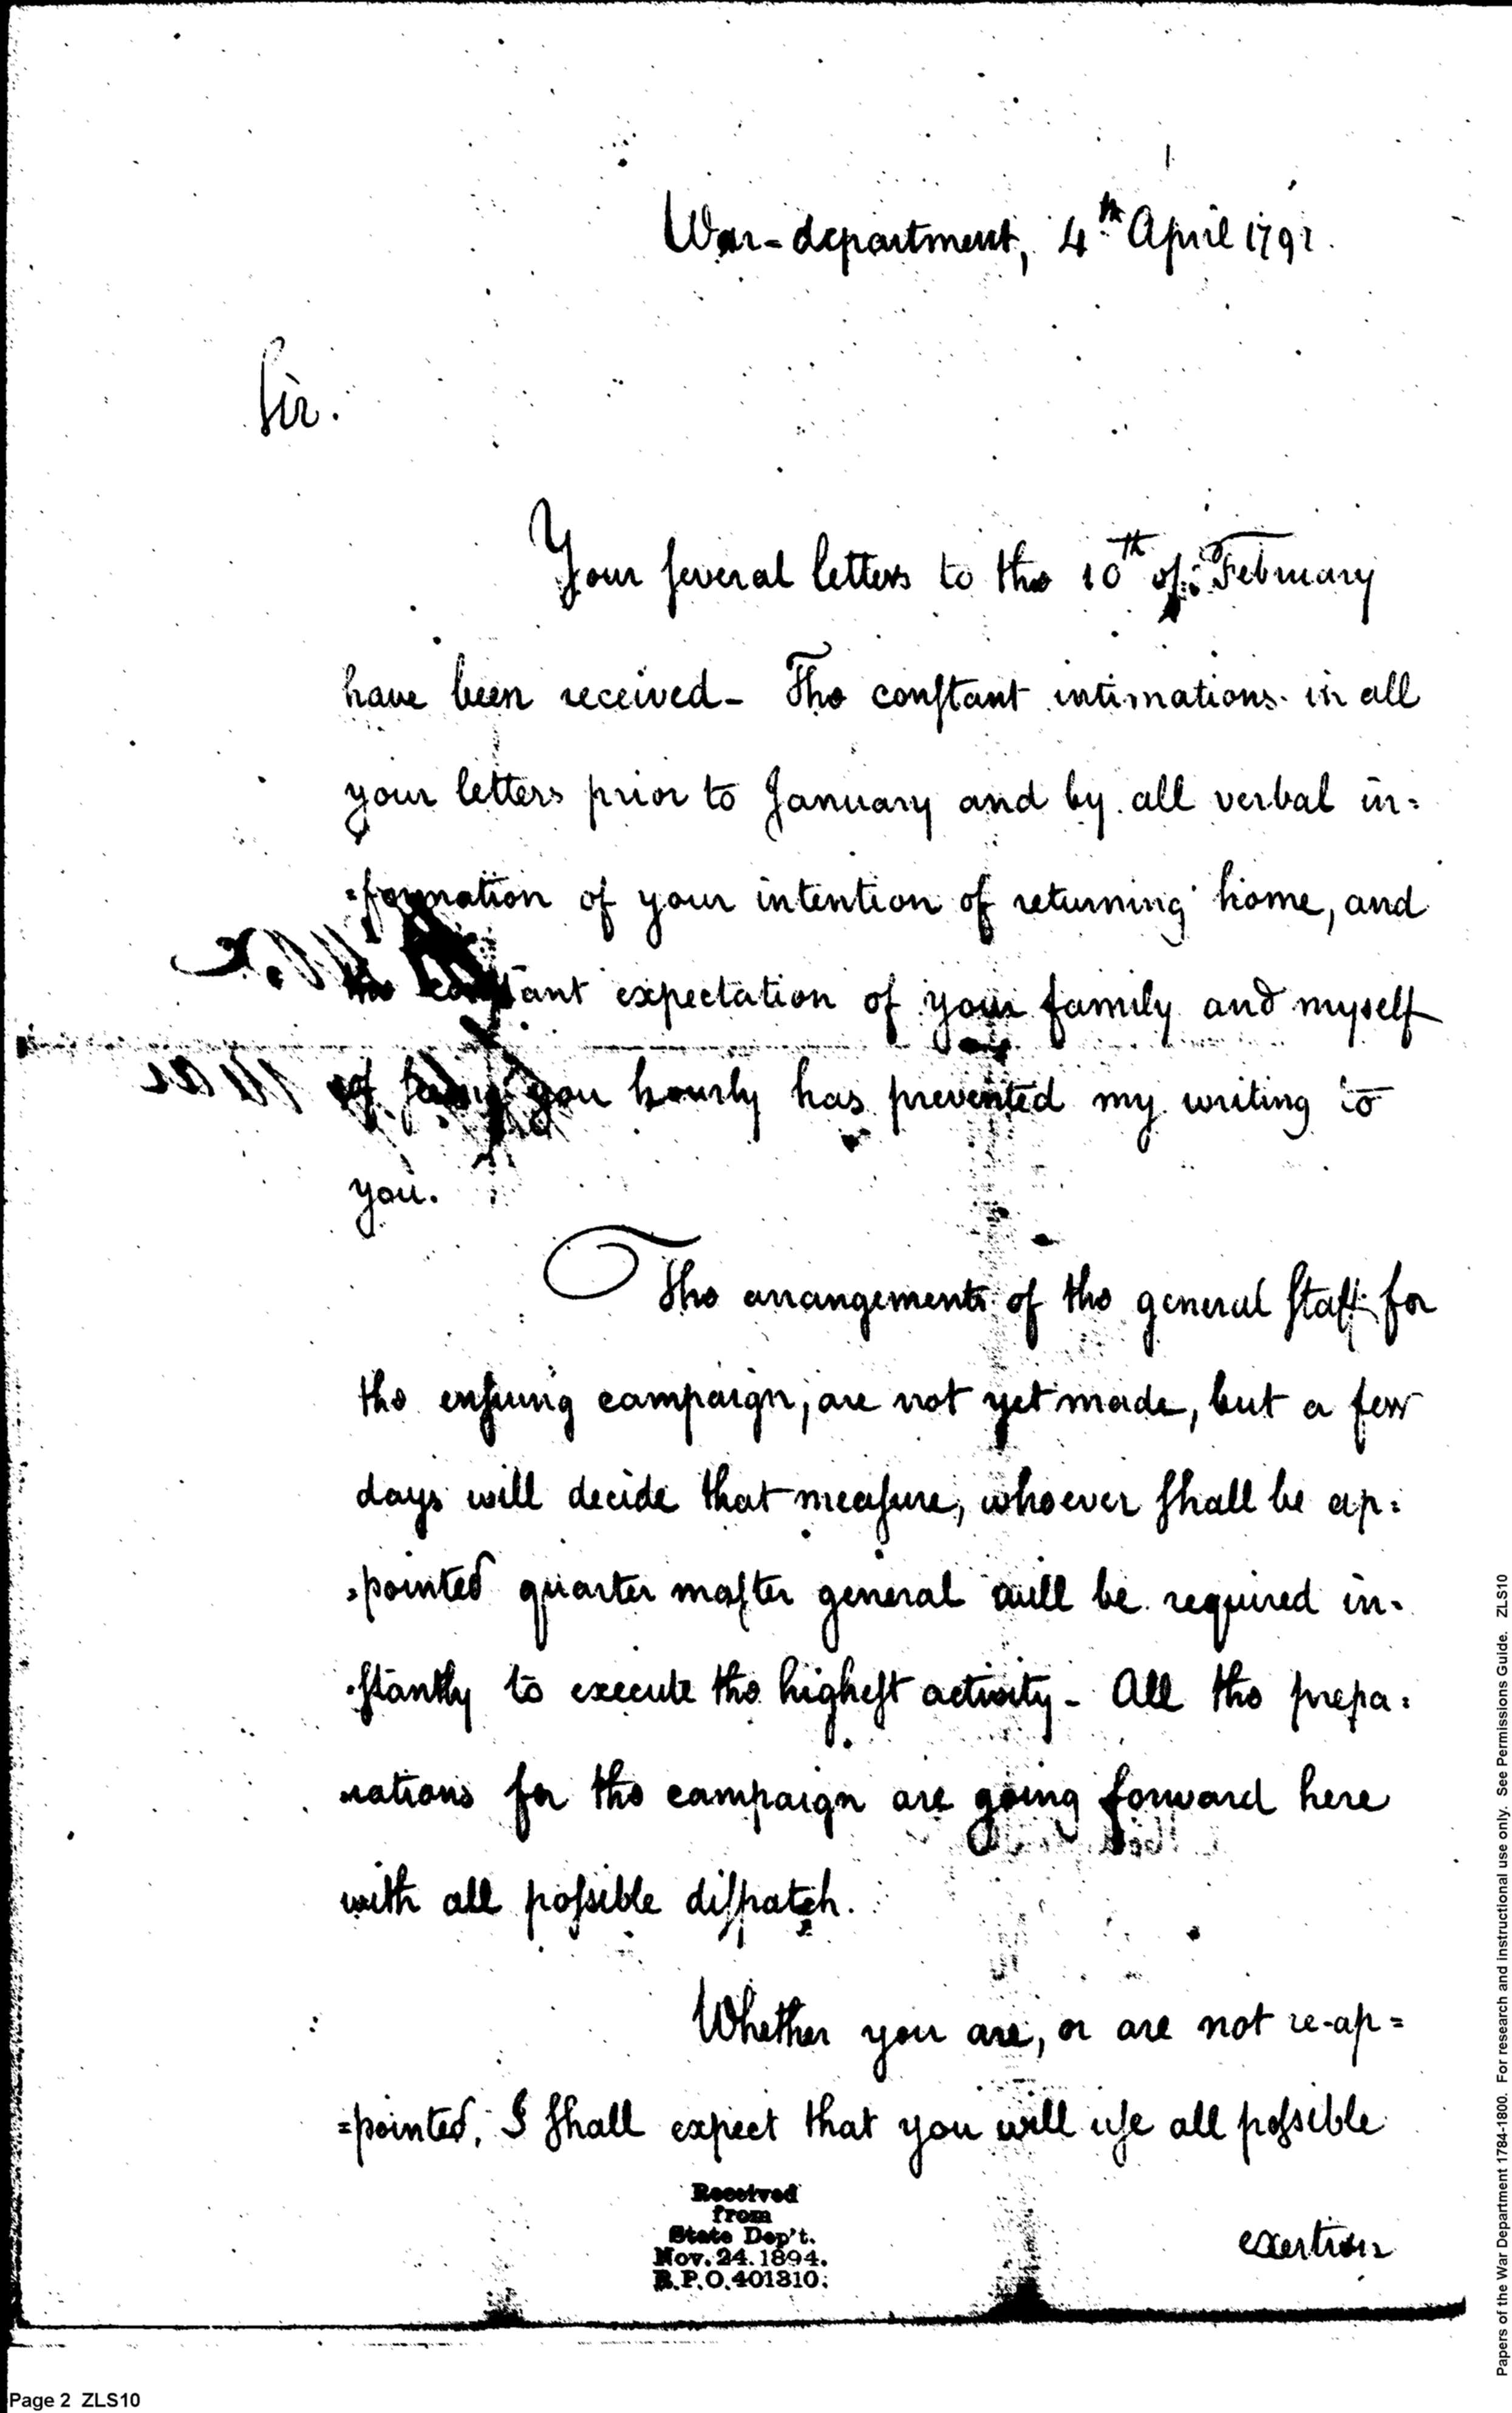 War-department, 4th April 1792.
Sir.
Your several letters to the 10th of February
have been received- The constant intimations in all
your letters prior to January and by all verbal in=
=formation of your intention of returning home, and
the constant expectation of your family and myself
of seeing you hourly has prevented my writing to
you.
The arrangements of the general staff for
the ensuing campaign, are not yet made, but a few
days will decide that measure, whoever shall be ap=
=pointed quarter master general will be required in=
=stantly to execute the highest activity- All the prepa=
rations for the campaign are going forward here
with all possible dispatch.
Whether you are, or are not re-ap=
=pointed, I shall expect that you will use all possible
exertion
Received
from
State Dep't.
Nov. 24. 1894.
R.P.O. 401310.
Page 2 ZLS10
Papers of the War Department 1784-1800. For research and instructional use only. See Permissions Guide. ZLS10